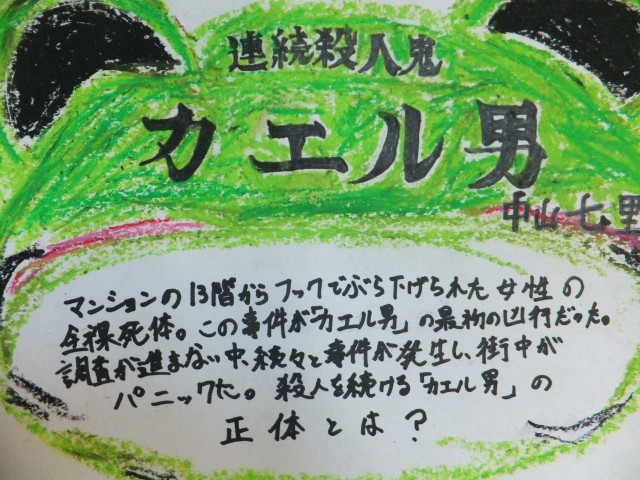 連続殺人鬼
カエル男
中山七里
マンションの13階からフックでぶら下げられた女性の
全裸死体。この事件が「カエル男」の最初の凶行だった。
調査が進まない中、続々と事件が発生し、街中が
パニックに。殺人を続ける「カエル男」の
正体とは?